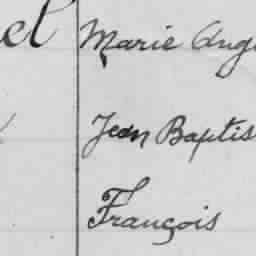 el Marie Ange
Jean Baptis
François